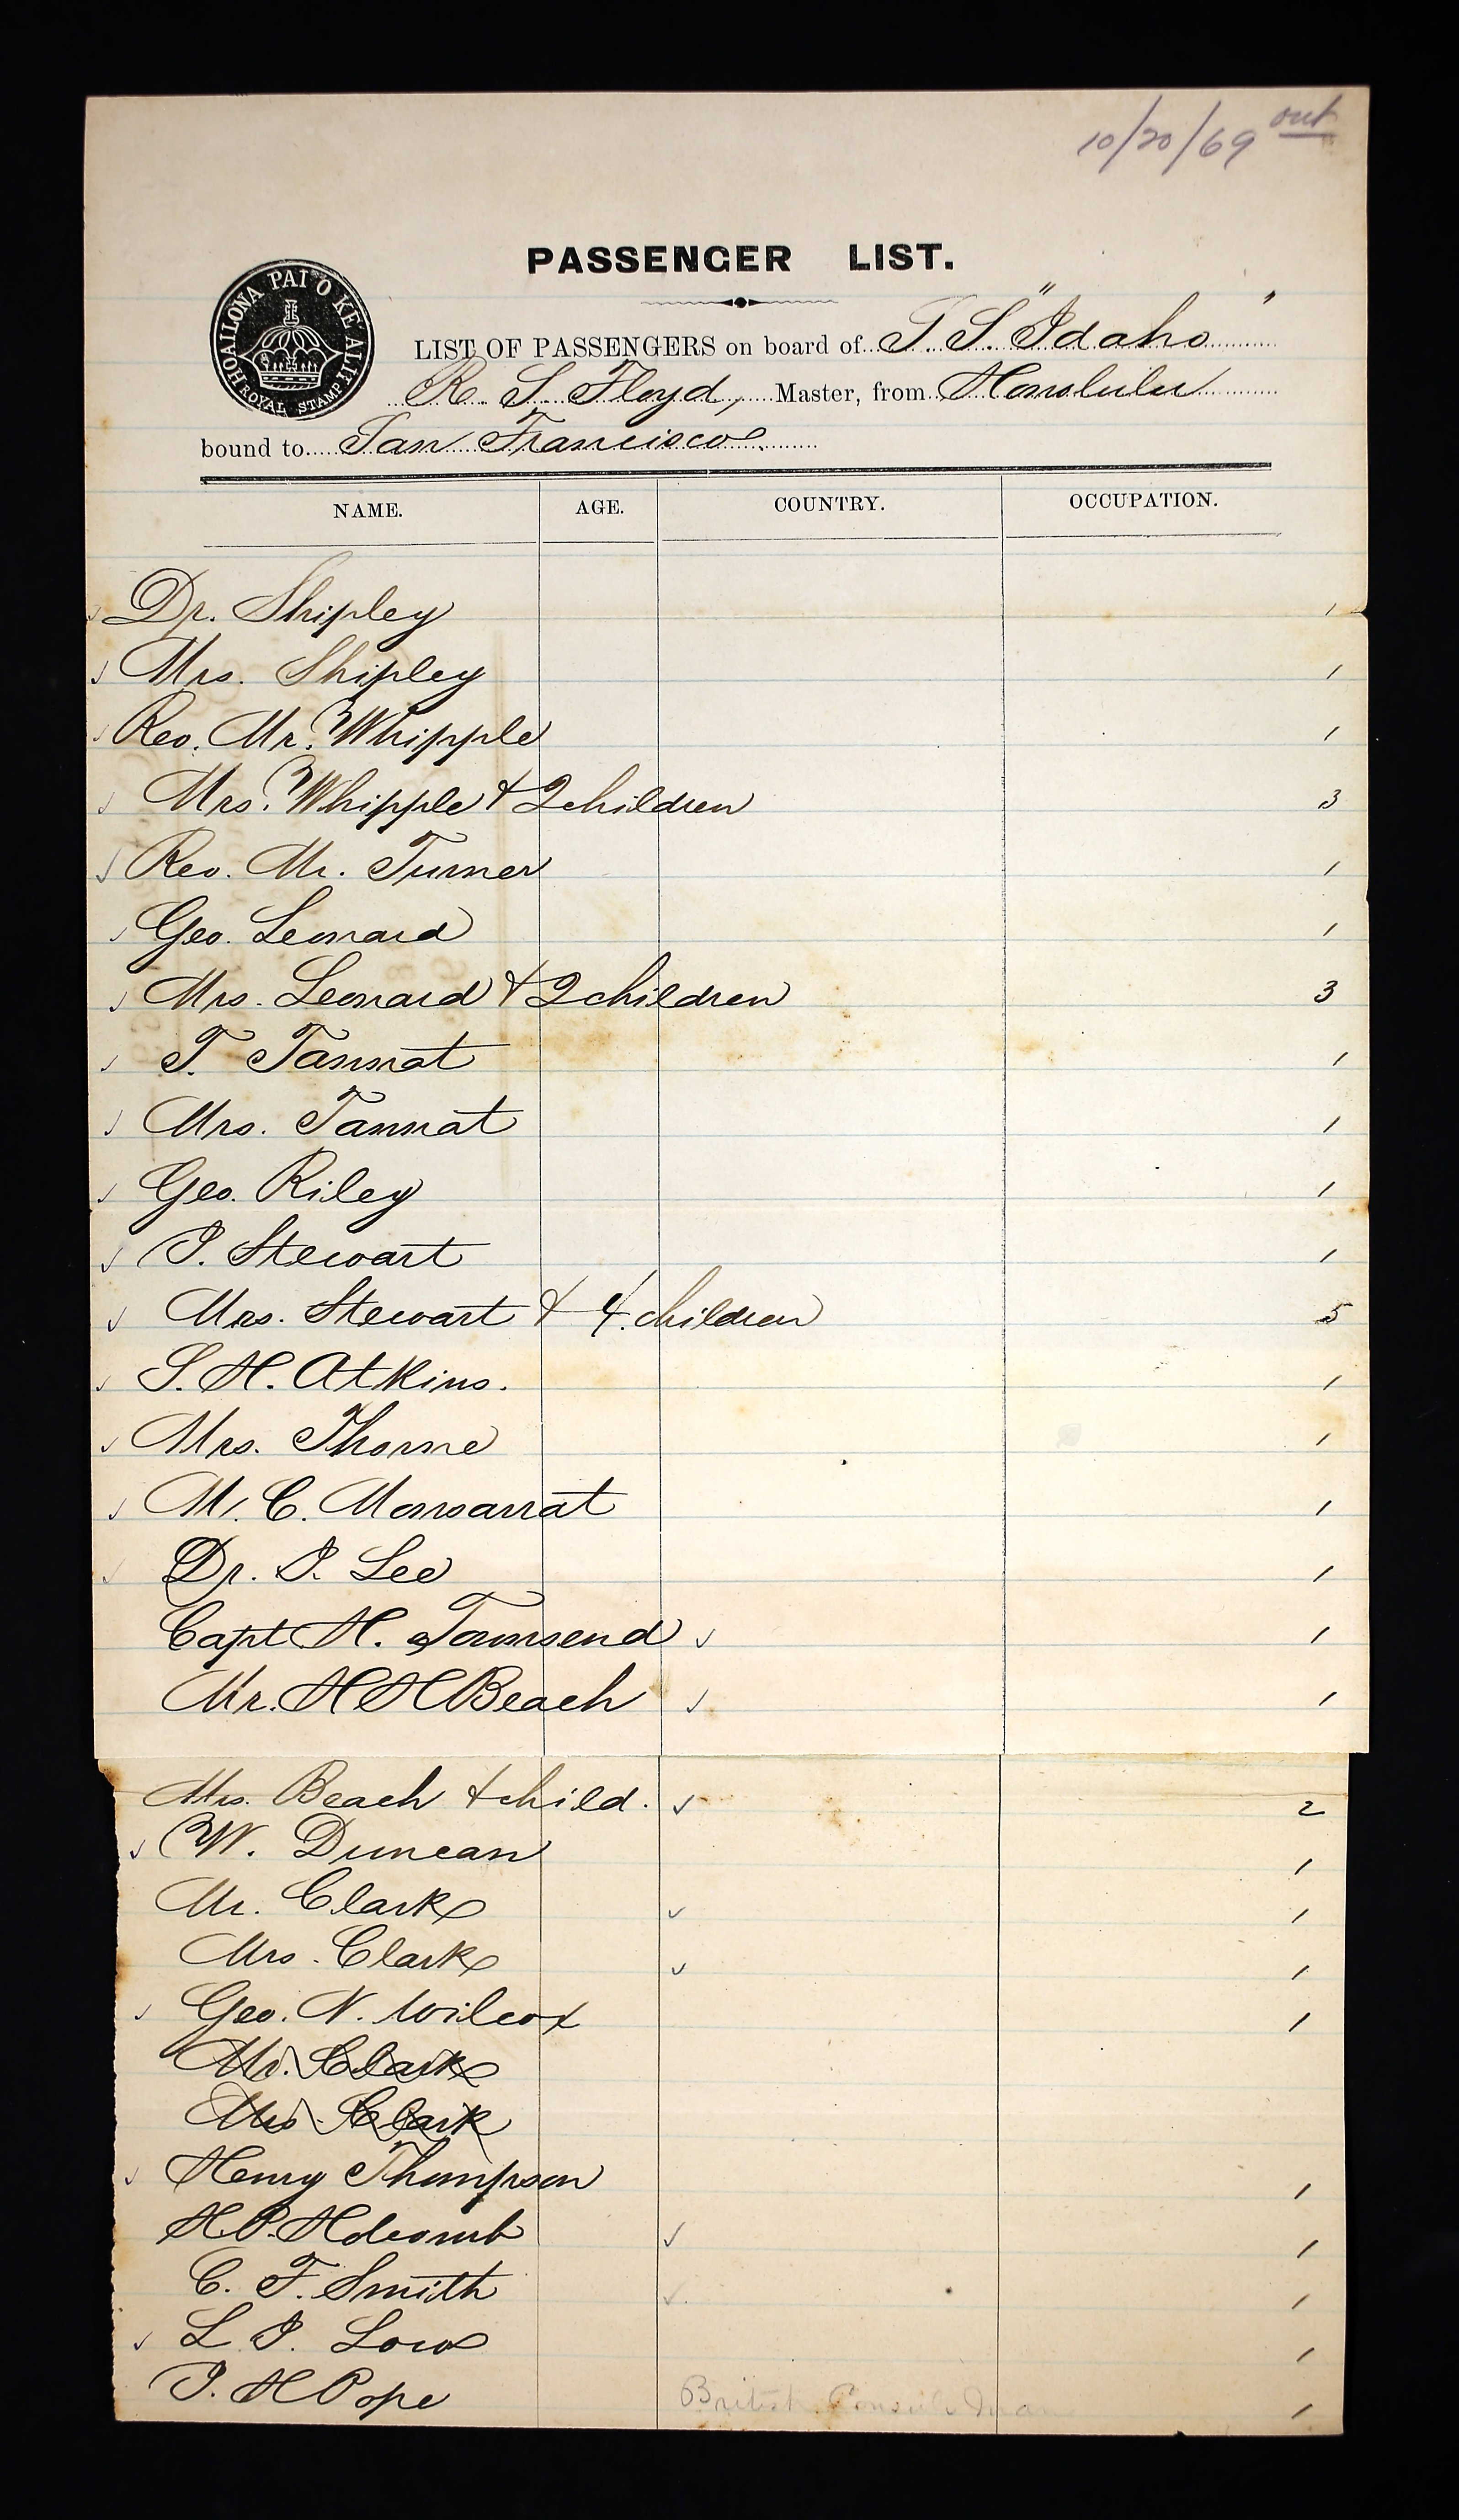 10/20/69 out
PASSENGER LIST.
HOAILONA PAI O KE ALII
ROYAL STAMP
LIST OF PASSENGERS on board of S. S. "Idaho"
R. S. Floyd, Master, from Honolulu
bound to San Francisco
NAME. AGE. COUNTRY. OCCUPATION.
Dr. Shipley 1
Mrs. Shipley 1
Rev. Mr. Whipple 1
Mrs. Whipple & 2 children 3
Rev. Mr. Turner 1
Geo. Leonard 1
Mrs. Leonard & 2 children 3
T. Tannat 1
Mrs. Tannat 1
Geo. Riley 1
J. Stewart 1
Mrs. Stewart & 4 children 5
S. H. Atkins. 1
Mrs. Thorne 1
M. C. Monsarrat 1
Dr. J. Lee 1
Capt H. Townsend 1
Mr. H H Beach 1
Mrs. Beach & child. 2
W. Duncan 1
Mr. Clark 1
Mrs. Clark 1
Geo. N. Wilcox 1
Mr. Clark
Mrs. Clark
Henry Thompson 1
H. P. Holcomb 1
C. F. Smith 1
L J. Low 1
J. H Pope British Consul 1